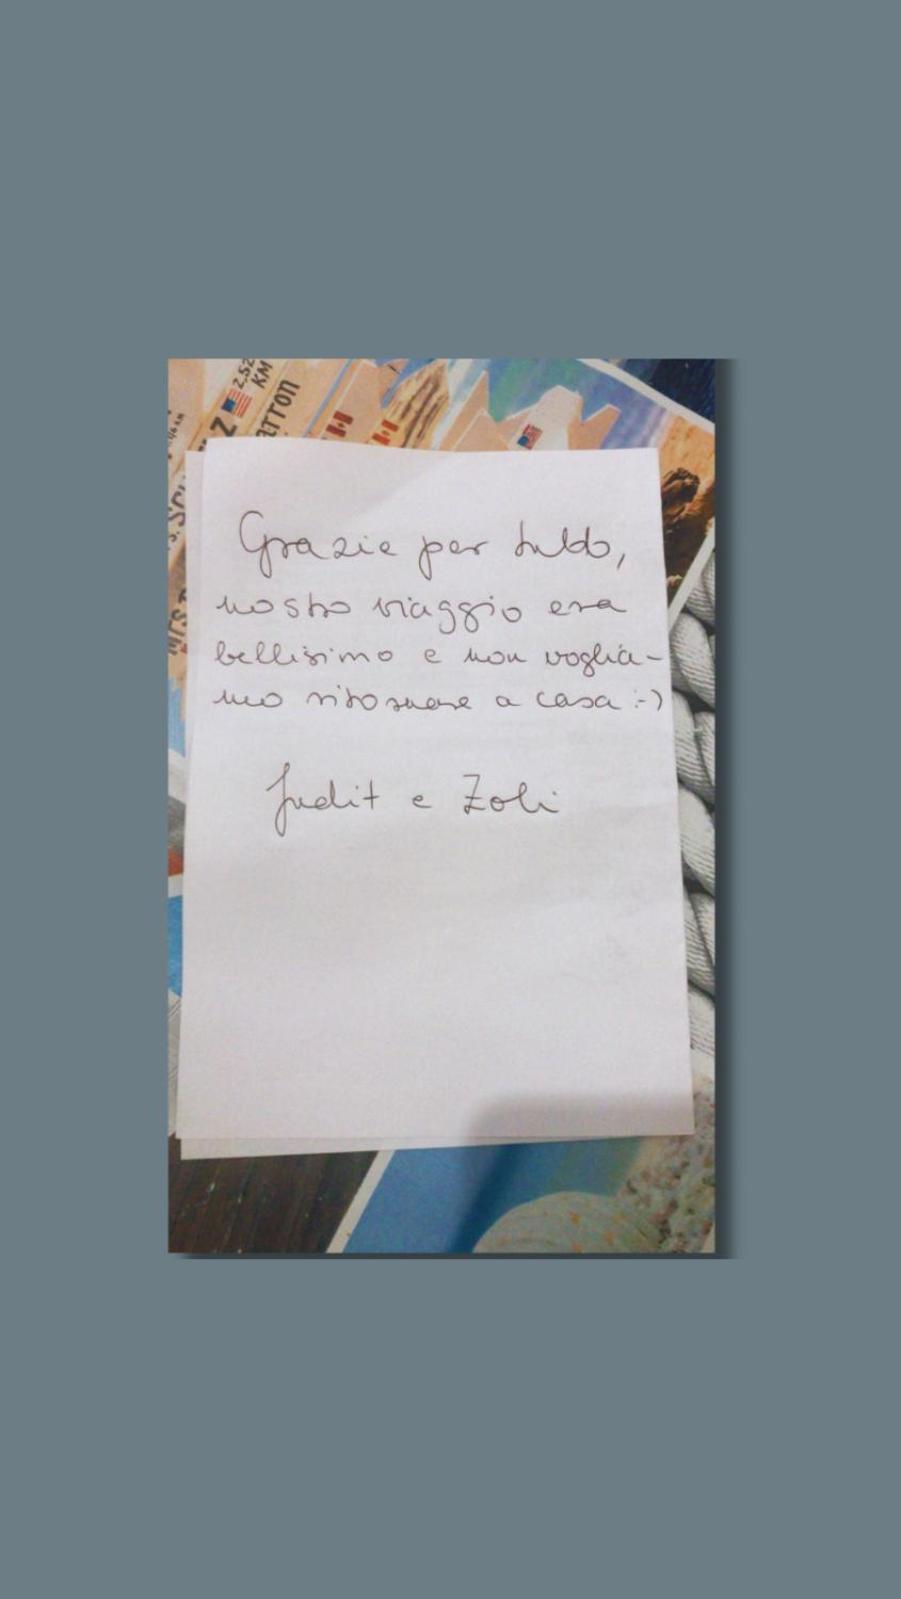 2.52
KM
Z
ATTON
MRS.
Grazie per tutto,
nostro viaggio era
bellisimo e non voglia-
mo ritornare a casa :-)
Judit e Zoli